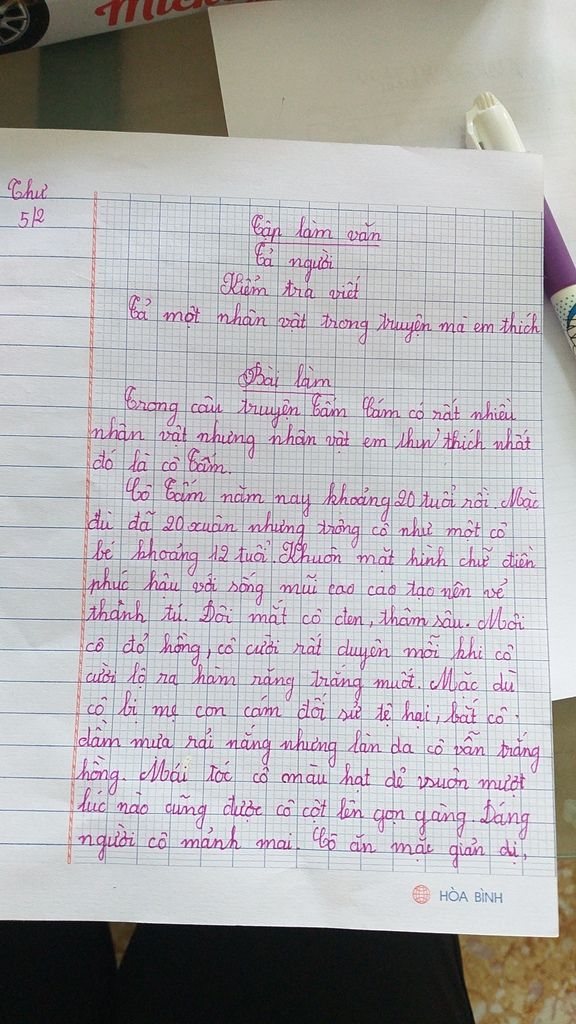 Thư
5/2
Tập làm văn
Tả người
Kiểm tra viết
Tả một nhân vật trong truyện mà em thích
Bài làm
Trong câu truyện Tấm Cám có rất nhiều
nhân vật nhưng nhân vật em thích nhất
đó là cô Tấm.
Cô Tấm năm nay khoảng 20 tuổi rồi. Mặc
dù đã 20 xuân nhưng trông cô như một cô
bé khoảng 12 tuổi. Khuôn mặt hình chữ điền
phúc hậu với sống mũi cao cao tạo nên vẻ
thanh tú. Đôi mắt cô đen, thâm sâu. Môi
cô đỏ hồng, cô cười rất duyên mỗi khi cô
cười lộ ra hàm răng trắng muốt. Mặc dù
cô bị mẹ con cám đối sử tệ hại, bắt cô
dầm mưa rải nắng nhưng làn da cô vẫn trắng
hồng. Mái tóc cô màu hạt dẻ vsuôn mượt
lúc nào cũng được cô cột lên gọn gàng. Dáng
người cô mảnh mai. Cô ăn mặc giản dị,
HÒA BÌNH